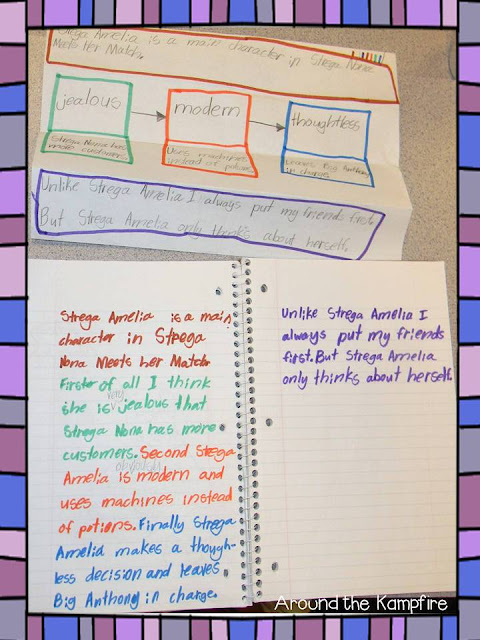 Strega Amelia is a main character in Strega Nona
Meets Her Match.
jealous
modern
thoughtless
Strega Nona has
more customers.
Uses machines
instead of potions.
Leaves Big Anthony
in charge.
Unlike Strega Amelia I always put my friends first.
But Strega Amelia only thinks about herself.
Strega Amelia is a main
character in Strega
Nona Meets her Match.
First of all I think
she is very jealous that
Strega Nona has more
customers. Second Strega
obviously
Amelia is modern and
uses machines instead
of potions. Finally Strega
Amelia makes a though-
less decision and leaves
Big Anthony in charge.
Unlike Strega Amelia I
always put my friends
first. But Strega Amelia
only thinks about herself.
Around the Kampfire